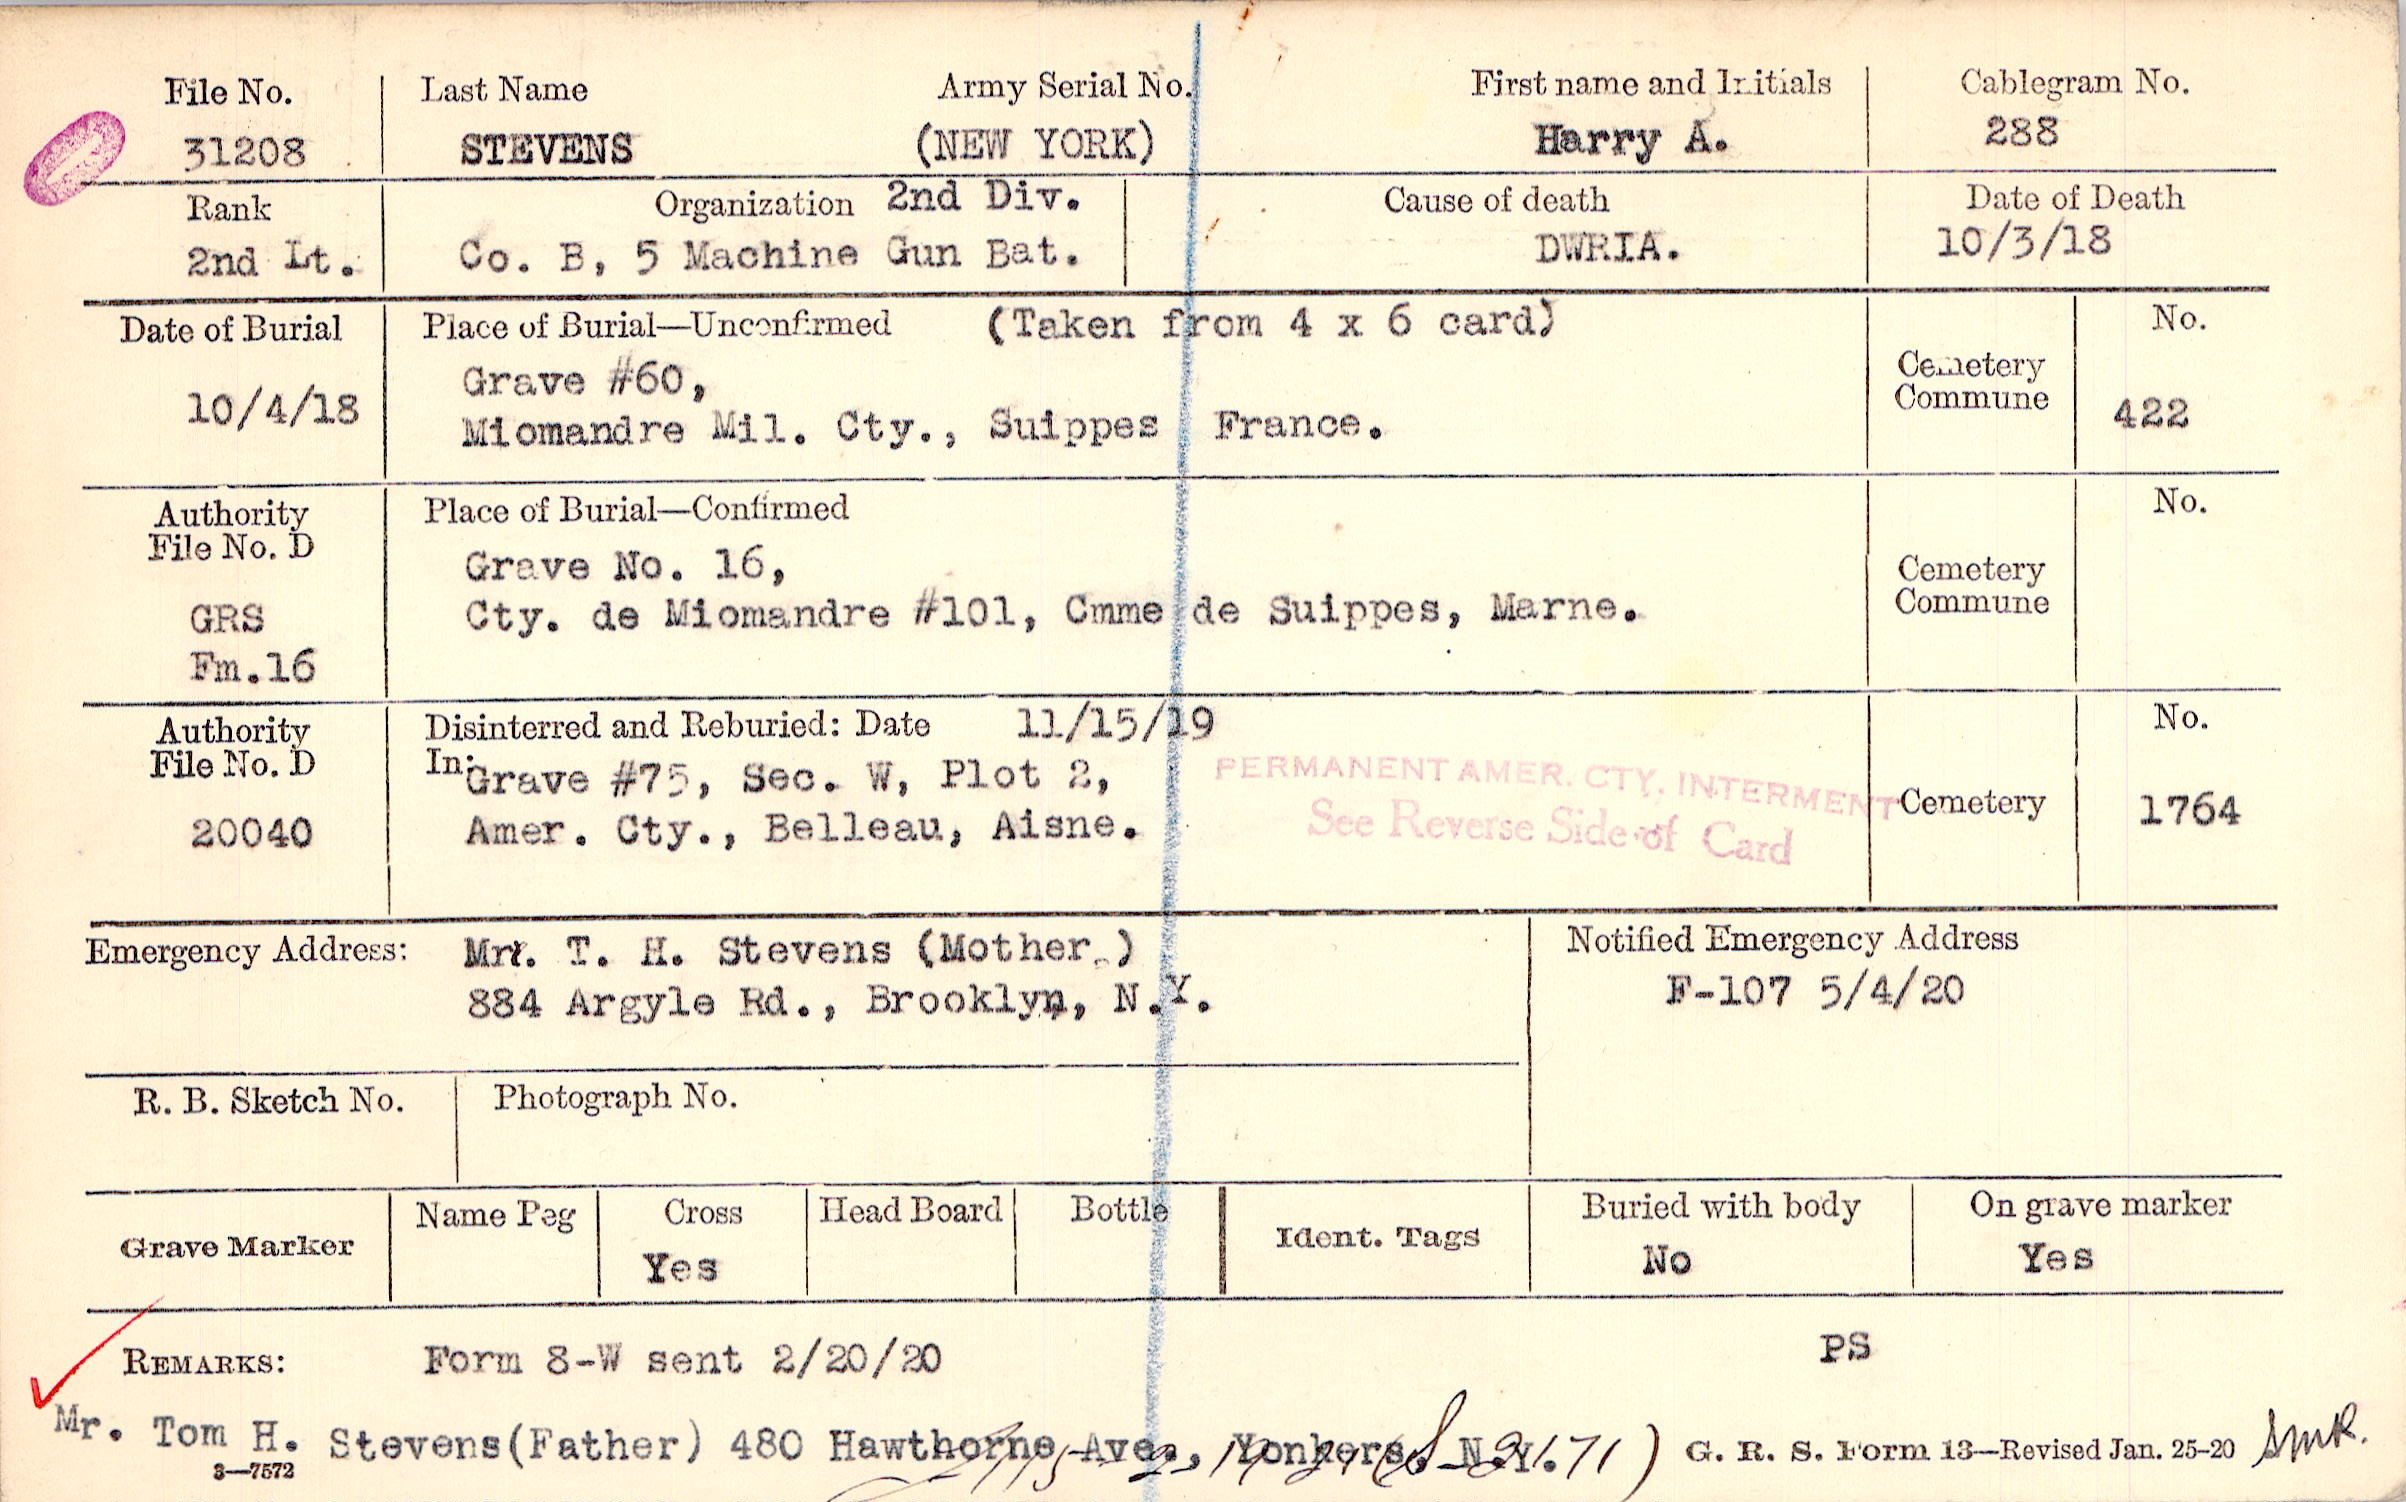 File No. Last Name Army Serial No. First name and Initials Cablegram No.
31208 STEVENS (NEW YORK) Harry A. 288
Rank Organization 2nd Div. Cause of death Date of Death
2nd Lt. Co. B, 5 Machine Gun Bat. DWRIA. 10/3/18
Date of Burial Place of Burial—Unconfirmed (Taken from 4 x 6 card) No.
Grave #60, Cemetery
10/4/18 Miomandre Mil. Cty., Suippes France. Commune 422
Authority Place of Burial—Confirmed No.
File No. D
Grave No. 16, Cemetery
GRS Cty. de Miomandre #101, Cmme de Suippes, Marne. Commune
Fm.16
Authority Disinterred and Reburied: Date 11/15/19 No.
File No. D In: Grave #75, Sec. W, Plot 2, PERMANENT AMER. CTY. INTERMENT
20040 Amer. Cty., Belleau, Aisne. See Reverse Side of Card Cemetery 1764
Emergency Address: Mr. T. H. Stevens (Mother.) Notified Emergency Address
884 Argyle Rd., Brooklyn, N.Y. F-107 5/4/20
R. B. Sketch No. Photograph No.
Grave Marker Name Peg Cross Head Board Bottle Ident. Tags Buried with body On grave marker
Yes No Yes
REMARKS: Form 8-W sent 2/20/20 PS
Mr. Tom H. Stevens(Father) 480 Hawthorne Ave., Yonkers, N.Y. G. R. S. Form 13—Revised Jan. 25-20 SMR.
3—7572